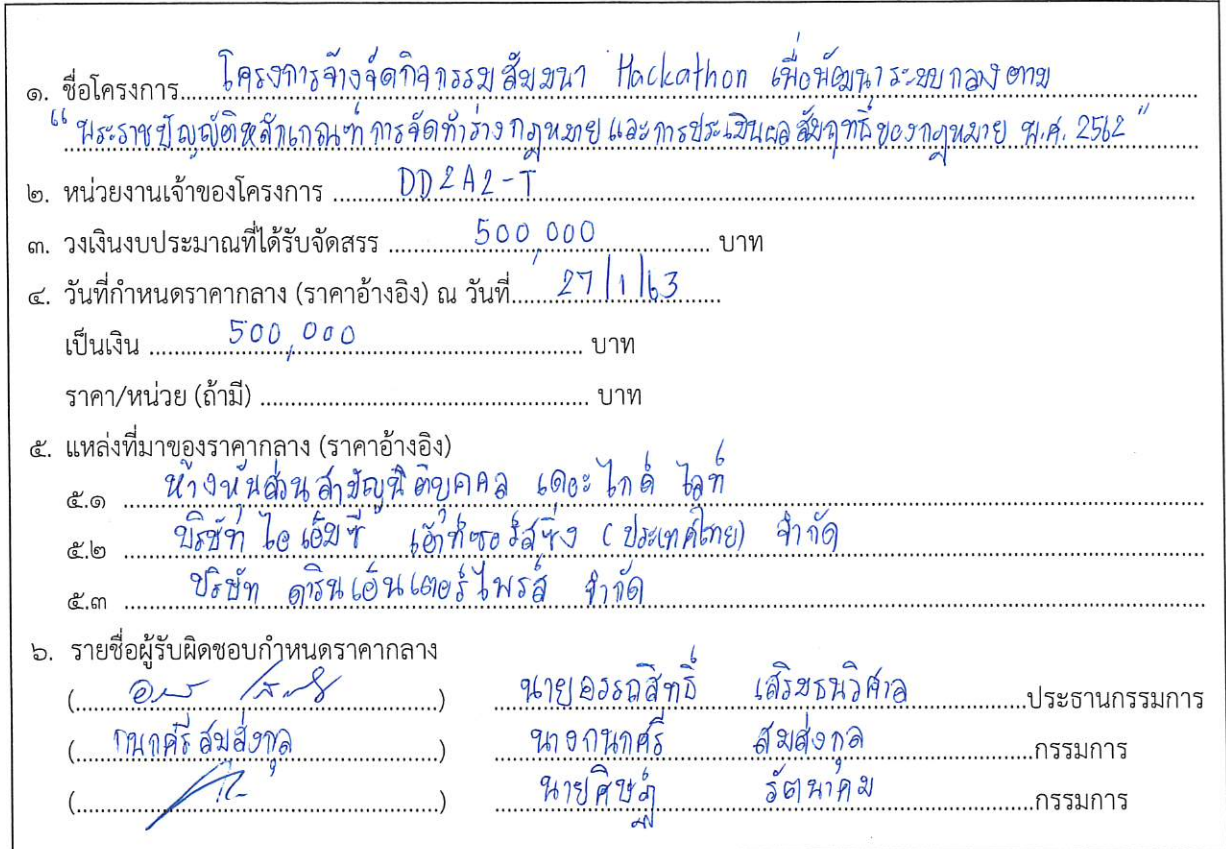 ๑. ชื่อโครงการ โครงการจ้างจัดกิจกรรมสัมมนา Hackathon เพื่อพัฒนาระบบกลางตาม
“พระราชบัญญัติหลักเกณฑ์การจัดทำร่างกฎหมายและการประเมินผลสัมฤทธิ์ของกฎหมาย พ.ศ. 2562”
๒. หน่วยงานเจ้าของโครงการ DD2A2-T
๓. วงเงินงบประมาณที่ได้รับจัดสรร 500,000 บาท
๔. วันที่กำหนดราคากลาง (ราคาอ้างอิง) ณ วันที่ 27/1/63
เป็นเงิน 500,000 บาท
ราคา/หน่วย (ถ้ามี) บาท
๕. แหล่งที่มาของราคากลาง (ราคาอ้างอิง)
๕.๑ ห้างหุ้นส่วนสามัญนิติบุคคล เดอะ ไกด์ ไลท์
๕.๒ บริษัท ไอ เอ็ม ซี เอ้าท์ซอร์สซิ่ง (ประเทศไทย) จำกัด
๕.๓ บริษัท ดารินเอ็นเตอร์ไพรส์ จำกัด
๖. รายชื่อผู้รับผิดชอบกำหนดราคากลาง
( ) นายอรรถสิทธิ์ เสริมธนวิศาล ประธานกรรมการ
(กนกศรี สมส่งกุล) นางกนกศรี สมส่งกุล กรรมการ
( ) นายศิษฏ์ รัตนาคม กรรมการ